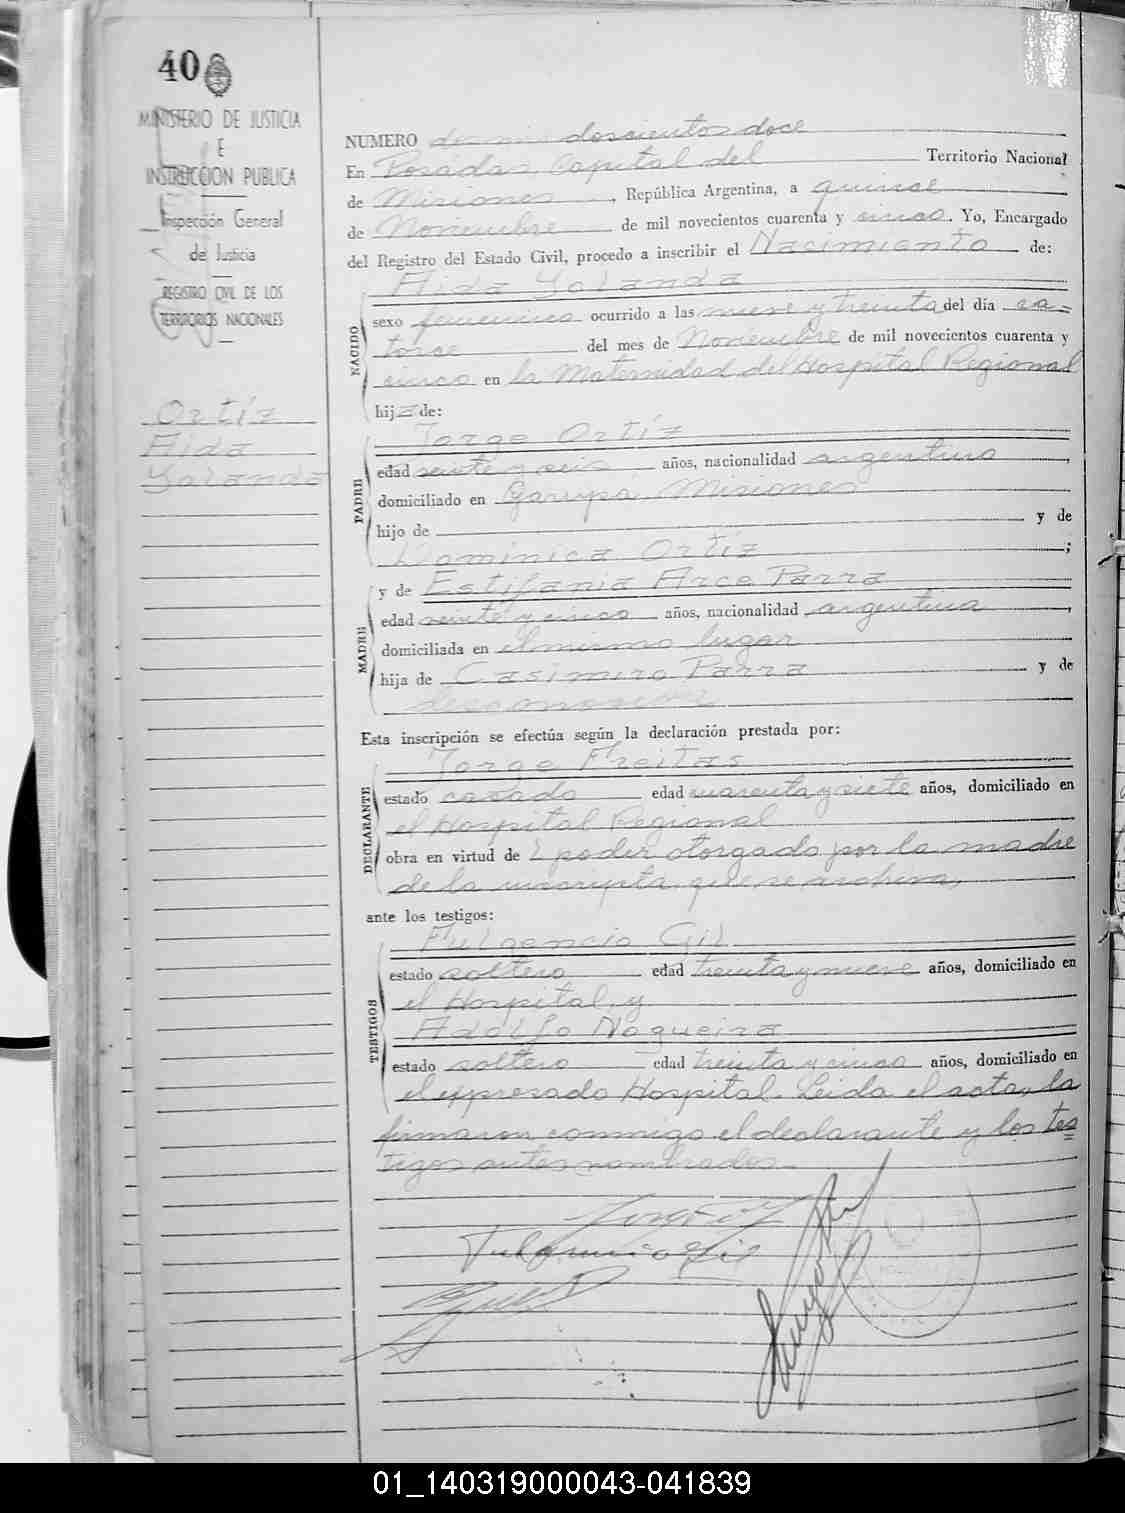 40
MINISTERIO DE JUSTICIA
E
INSTRUCCION PUBLICA
Inspección General
de Justicia
REGISTRO CIVIL DE LOS
TERRITORIOS NACIONALES
Ortíz
Aida
Yolanda
NUMERO dos mil doscientos doce
En Posadas, Capital del Territorio Nacional
de Misiones, República Argentina, a quince
de Noviembre de mil novecientos cuarenta y cinco. Yo, Encargado
del Registro del Estado Civil, procedo a inscribir el Nacimiento de:
NACIDO
Aida Yolanda
sexo femenino ocurrido a las nueve y treinta del día ca=
torce del mes de Noviembre de mil novecientos cuarenta y
cinco en la Maternidad del Hospital Regional
hija de:
PADRE
Jorge Ortíz
edad veinte y seis años, nacionalidad argentino,
domiciliado en Garupá Misiones
hijo de y de
Dominica Ortíz;
MADRE
y de Estifania Arce Parra
edad veinte y cinco años, nacionalidad argentina,
domiciliada en el mismo lugar
hija de Casimiro Parra y de
Esta inscripción se efectúa según la declaración prestada por:
DECLARANTE
Jorge Freitas
estado casado edad cuarenta y siete años, domiciliado en
el Hospital Regional
obra en virtud de l poder otorgado por la madre
de la inscripta, que se archiva,
ante los testigos:
TESTIGOS
Fulgencio Gil
estado soltero edad treinta y nueve años, domiciliado en
el Hospital, y
Adolfo Nogueira
estado soltero edad treinta y cinco años, domiciliado en
el expresado Hospital. Leída el acta, la
firmaron conmigo el declarante y los tes
tigos antes nombrados.
Fulgencio Gil
01_140319000043-041839